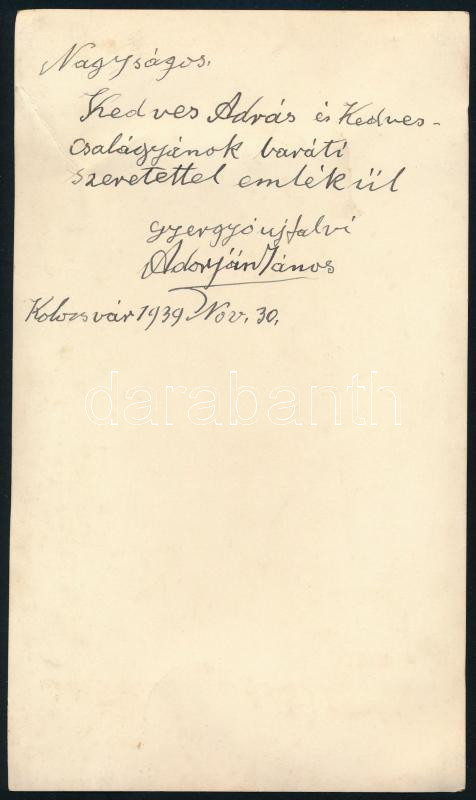 Nagyságos.
Kedves Adrás és Kedves-
családjánok baráti
szeretettel emlékül
gyergyóujfalvi
Adorján János
Kolozsvár 1939 Nov. 30.
darabanth